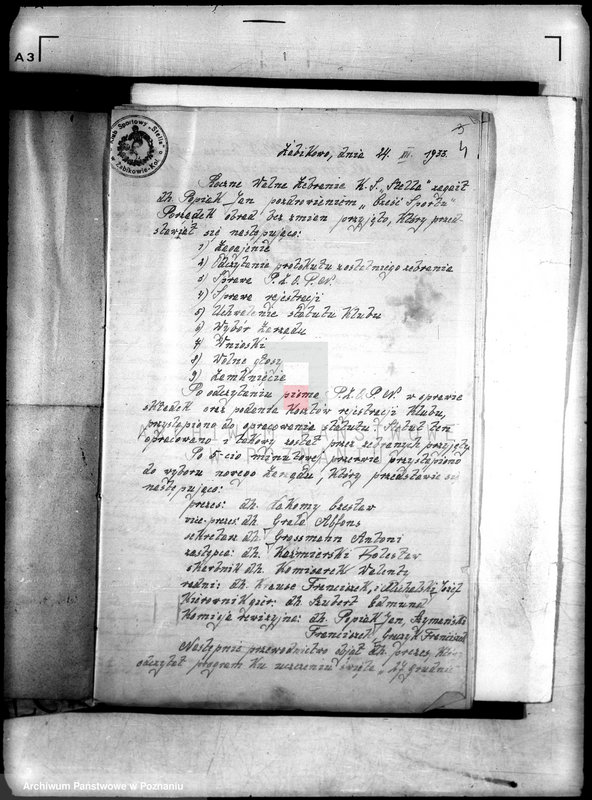 A3
Klub Sportowy "Stella"
w Żabikowie-Kol.
4
Żabikowo, dnia 24 III. 1935.
Roczne Walne Zebranie K. S. "Stella" zagaił
dh. Pepiak Jan pozdrowieniem "Cześć Sportu"
Porządek obrad bez zmian przyjęto, który przed
stawiał się następująco:
1) Zagajenie
2) Odczytanie protokułu z ostatniego zebrania
3) Sprawa P.Z.O.P.N.
4) Sprawa rejestracji
5) Uchwalenie statutu Klubu
6) Wybór Zarządu
7) Wnioski
8) Wolne głosy
9) Zamknięcie
Po odczytaniu pisma P.Z.O.P.N. w sprawie
składek oraz podania kosztów rejestracji Klubu,
przystąpiono do opracowania statutu. Statut ten
opracowano i takowy został przez zebranych przyjęty
Po 5-cio minutowej przerwie przystąpiono
do wyboru nowego Zarządu, który przedstawia się
następująco:
prezes: dh. Łakomy Czesław
vice-prezes: dh. Grala Alfons
sekretarz dh. Grossmann Antoni
zastępca: dh. Kaźmierski Bolesław
skarbnik dh. Komisarek Walenty
radni: dh. Krause Franciszek, i Michalski Józef
Kierownik gier: dh. Szubert Edmund
Komisja rewizyjna: dh. Pepiak Jan, Szymański
Franciszek, Franciszek
Następnie przewodnictwo objął dh. prezes, który
odczytał program ku uczczeniu święta "27 grudnia
Archiwum Państwowe w Poznaniu